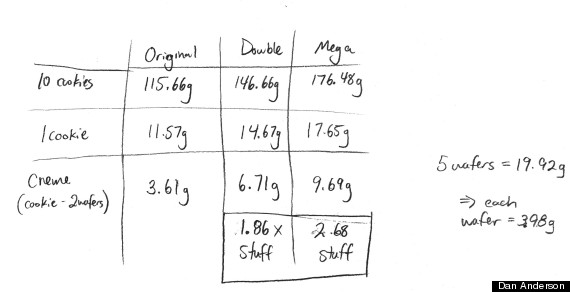 Original Double Mega
10 cookies 115.66g 146.66g 176.48g
1 cookie 11.57g 14.67g 17.65g
Creme
(cookie - 2 wafers) 3.61g 6.71g 9.69g
1.86 x 2.68
Stuff Stuff
5 wafers = 19.92g
⇒ each
wafer = 3.98g
Dan Anderson